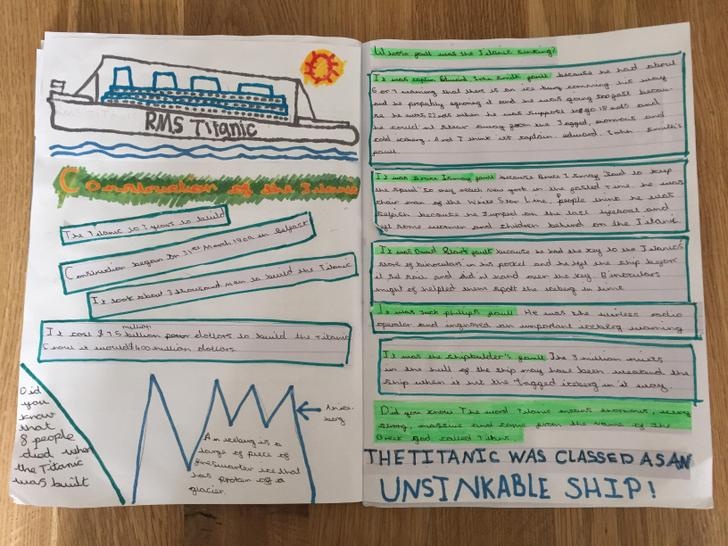 RMS Titanic
Construction of the Titanic
The Titanic to 3 years to build
Construction began on 31st March 1909 in Belfast
It took about 3 thousand men to build the Titanic
It cost $7.5 million dollars to build the Titanic
$400 million dollars
Did
you
know
that
8 people
died when
the Titanic
was built
An ice
berg
An iceberg is a
large of piece of
freshwater ice that
has broken of a
glacier.
Whose fault was the Titanic sinking?
It was captain Edward John Smith fault because he had about
6 or 7 warning that there is an ice berg comming his way
and he propably ignored it and he was going too fast becau-
se he was 22 not when he was suppose to go 18 nots and
he could not steer away from the Jagged, enormous and
cold iceberg. And I think its captain edward John Smith's
fault
It was Bruce Ismay fault because Bruce J Ismay said to keep
the speed so they reach New york in the fastest time he was
chair man of the White Star Line, people think he was
selfish because he jumped on the last lifeboat and
left some women and children behind on the Titanic
It was David Blair's fault because he had the key to the Titanic's
store of binoculars in his pocket and he left the ship before
it set sail and did not hand over the key. Binoculars
might of helpted them spott the iceberg in time
It was Jack philips fault He was the wireless radio
operator and ingnored an important iceberg warning
It was the shipbuilder's fault The 3 million rivets
in the hull of the ship may have been weakend the
ship when it hit the Jagged iceberg in it way.
Did you know The word Titanic means enormous, very
strong, massive and come from the name of the
Greek God called Titan.
THE TITANIC WAS CLASSED AS AN
UNSINKABLE SHIP!